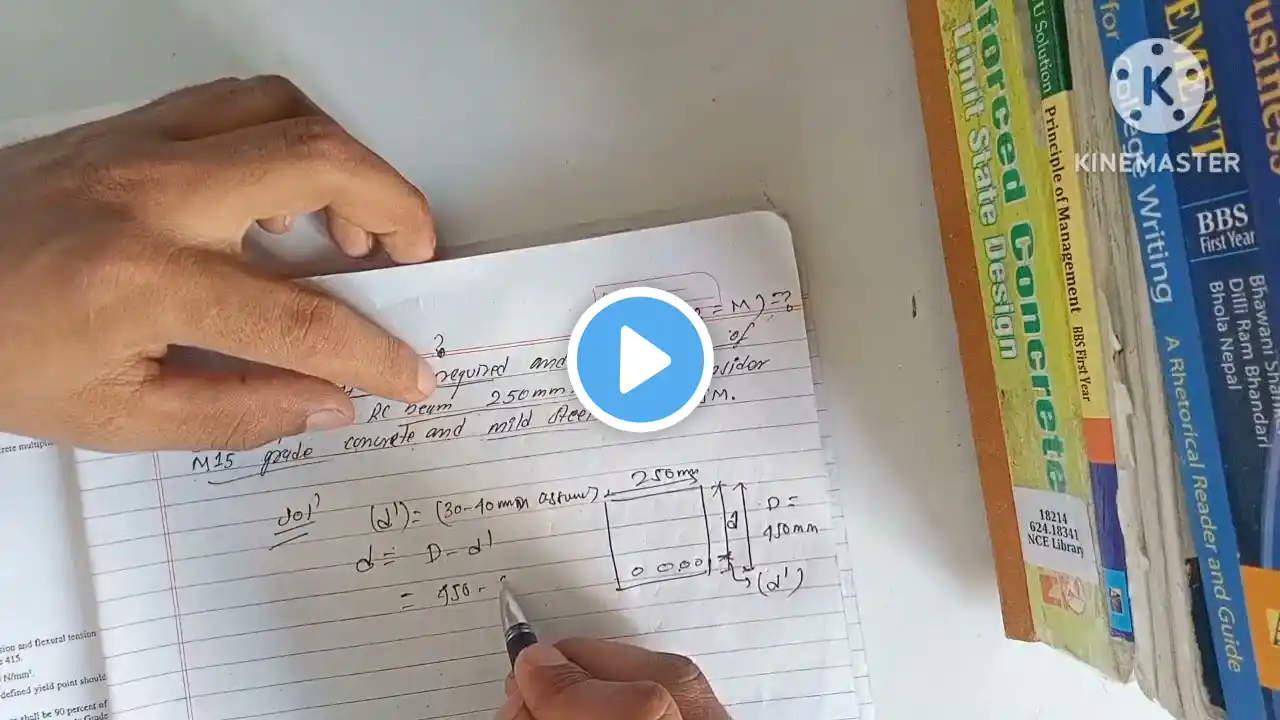 = M) = ?
?
of
required and
RC beam 250mm
M.
M15 grade concrete and mild steel
Sol^n
(d') = (30-40mm assum)
d = D - d'
= 450 -
250mm
d
D =
450mm
(d')
crete multip
sion and flexural tension
e 415.
N/mm².
defined yield point should
shall be 90 percent of
Grade
forced Concrete
Limit State Design
18214
624.18341
NCE Library
U Solution
Principle of Management
BBS First Year
for College Writing
A Rhetorical Reader and Guide
EMENT
BBS
First Year
Dilli Ram Bhandari
Bhola Nepal
usiness
KINEMASTER